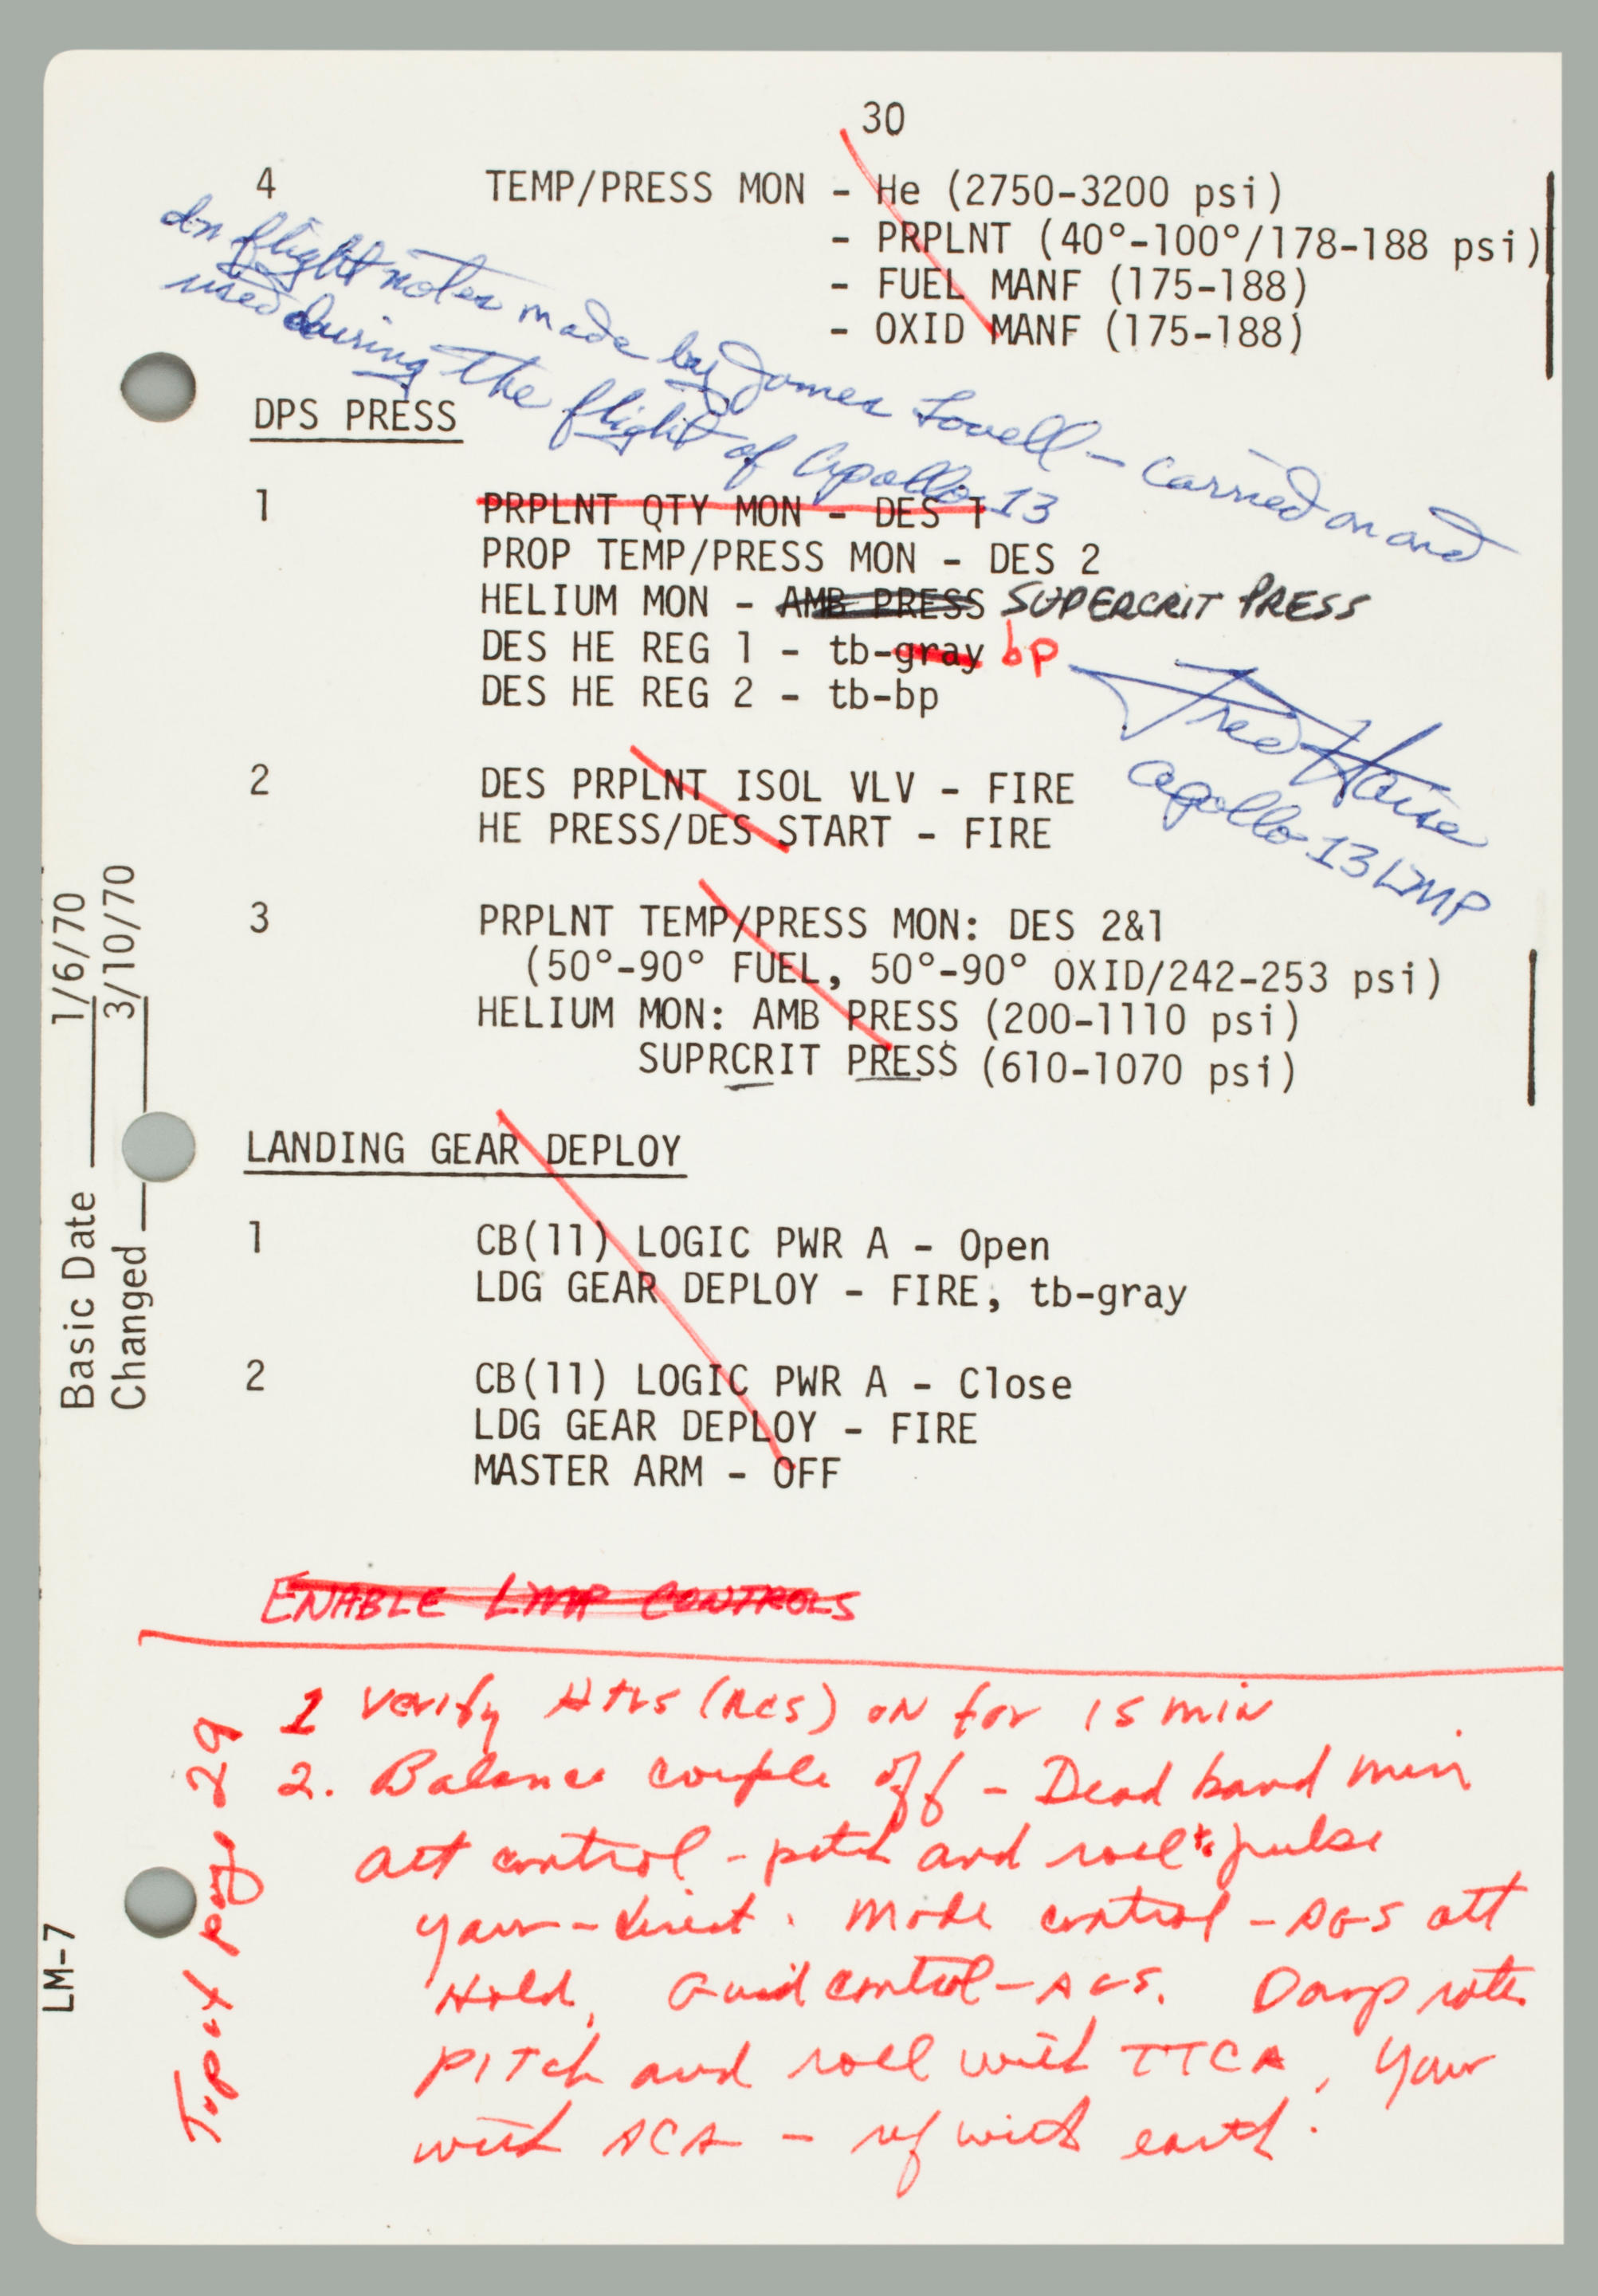 30
4 TEMP/PRESS MON - He (2750-3200 psi)
- PRPLNT (40°-100°/178-188 psi)
- FUEL MANF (175-188)
- OXID MANF (175-188)
In flight notes made by James Lovell - carried on and
used during the flight of Apollo 13
DPS PRESS
1 PRPLNT QTY MON - DES 1
PROP TEMP/PRESS MON - DES 2
HELIUM MON - AMB PRESS SUPERCRIT PRESS
DES HE REG 1 - tb-gray bp
DES HE REG 2 - tb-bp
Fred Haise
Apollo 13 LMP
2 DES PRPLNT ISOL VLV - FIRE
HE PRESS/DES START - FIRE
3 PRPLNT TEMP/PRESS MON: DES 2&1
(50°-90° FUEL, 50°-90° OXID/242-253 psi)
HELIUM MON: AMB PRESS (200-1110 psi)
SUPRCRIT PRESS (610-1070 psi)
LANDING GEAR DEPLOY
1 CB(11) LOGIC PWR A - Open
LDG GEAR DEPLOY - FIRE, tb-gray
2 CB(11) LOGIC PWR A - Close
LDG GEAR DEPLOY - FIRE
MASTER ARM - OFF
ENABLE LMP CONTROLS
1 Verify Htrs (RCS) ON for 15 min
2. Balance couple off - Dead band min
att control - pitch and roll to pulse
yaw - direct. Mode control - AGS att
Hold. Guid control - AGS. Damp rates
pitch and roll with TTCA, Yaw
with ACA - ref with earth.
Top of page 29
Basic Date 1/6/70
Changed 3/10/70
LM-7